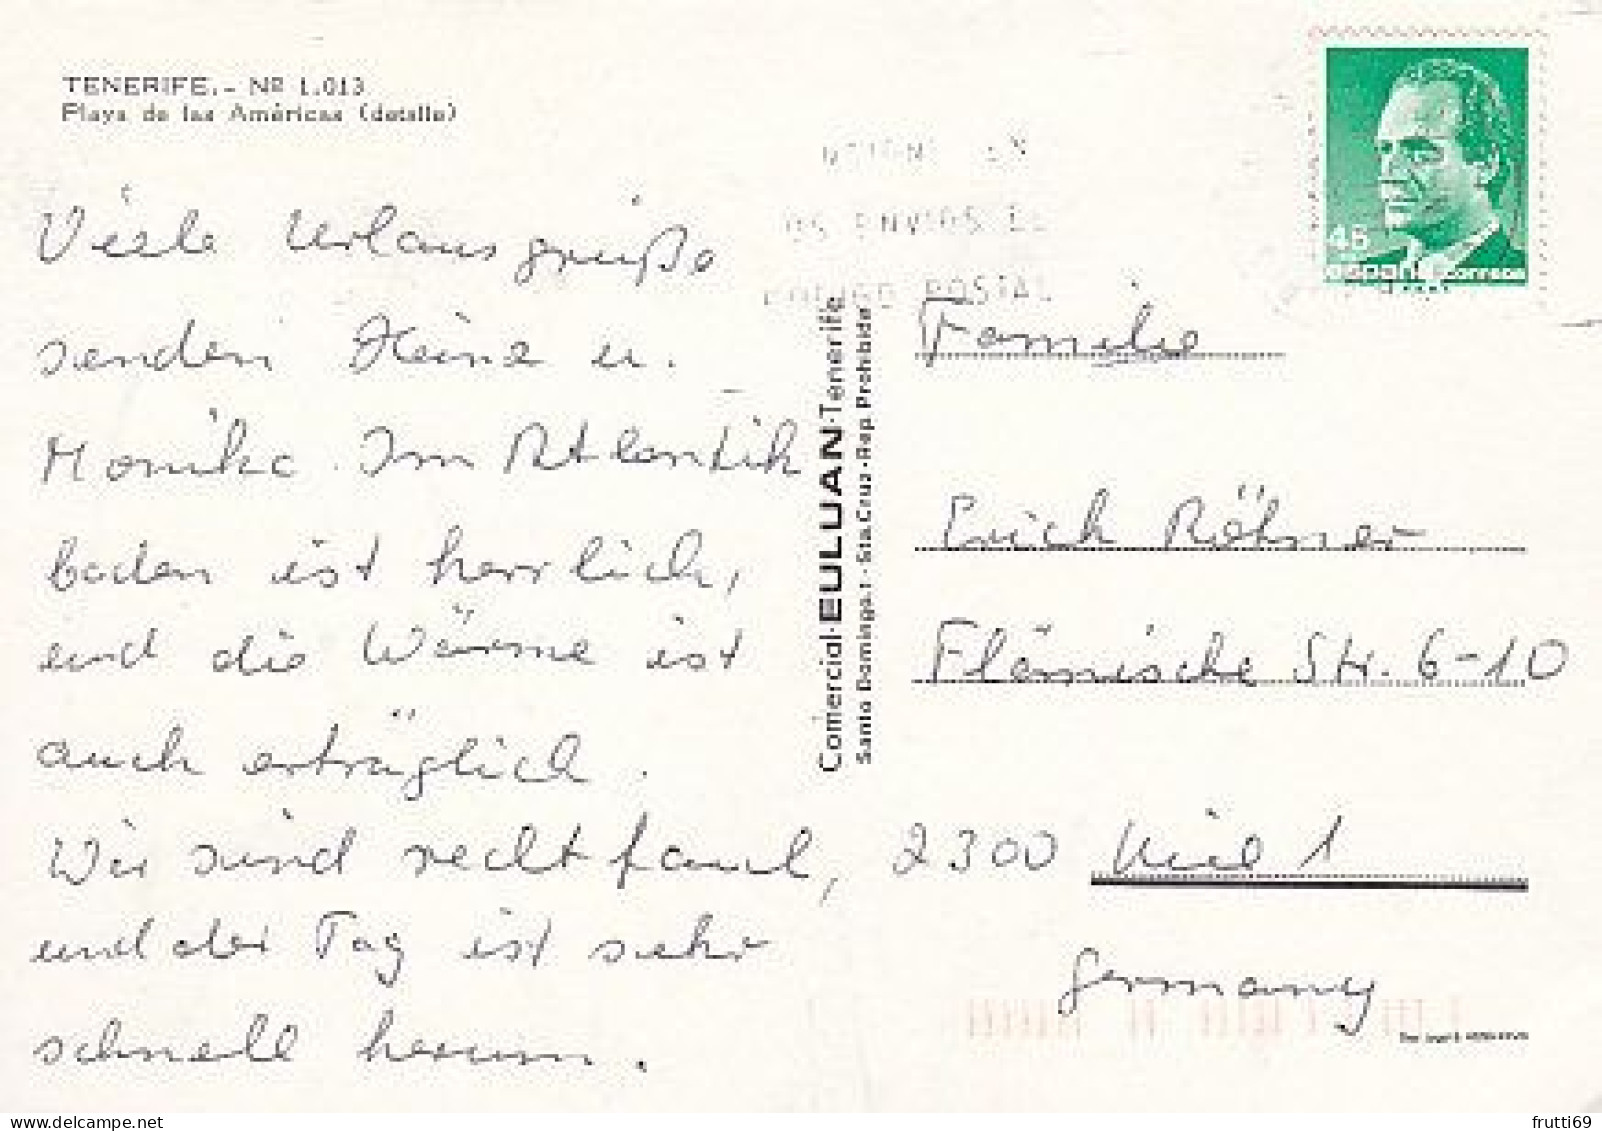 TENERIFE.- Nº 1.013
Playa de las Américas (detalle)
Viele Urlausgrüße
senden Heinz u.
Monika. Im Atlantik
baden ist herrlich,
und die Wärme ist
auch erträglich.
Wir sind recht faul,
und der Tag ist sehr
schnell herum.
OS ENVIOS EL
CODIGO POSTAL
Comercial·EULUAN·Tenerife
Santo Domingo,1·Sta.Cruz·Rep. Prohibida
45
españa correos
Familie
Erich Röhner
Flämische Str. 6-10
2300 Kiel 1
Germany
frutti69